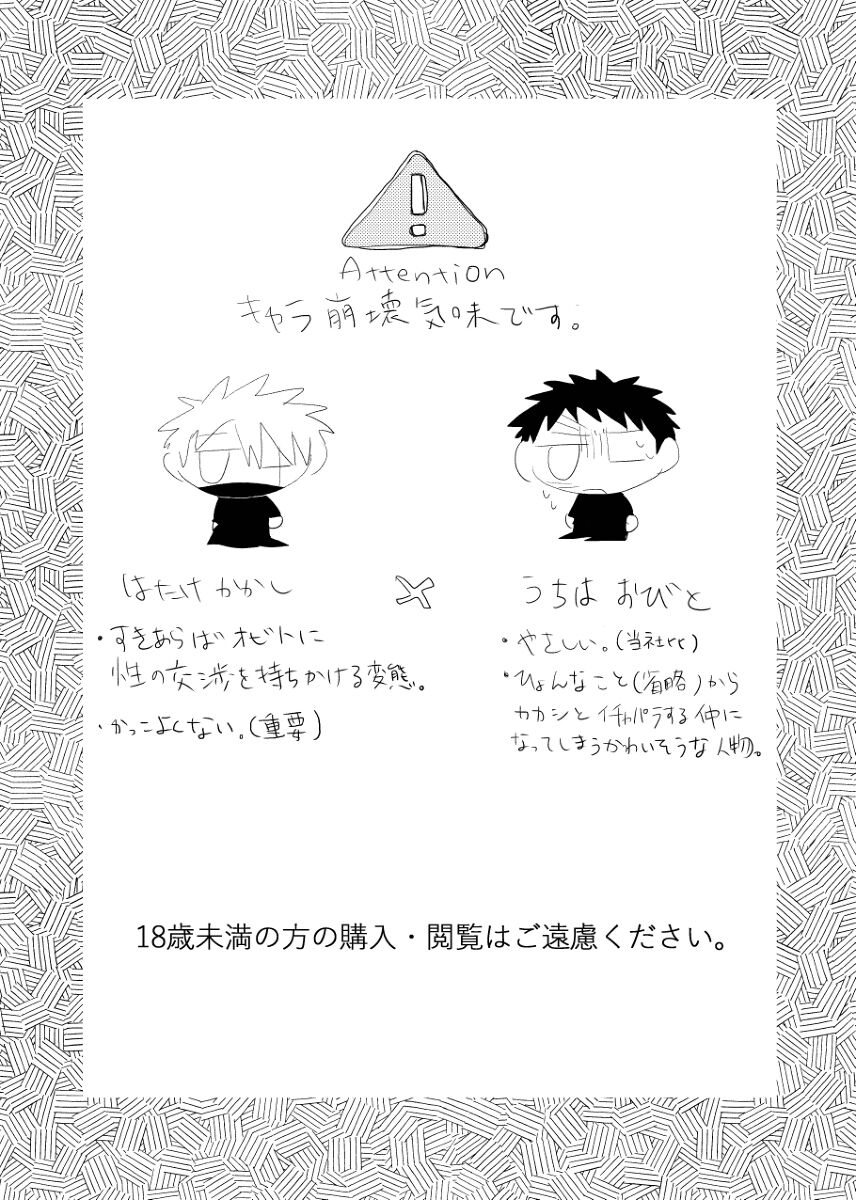 !
Attention
キャラ崩壊気味です。
はたけ かかし
×
うちは おびと
・すきあらばオビトに
性の交渉を持ちかける変態。
・かっこよくない。(重要)
・やさしい。(当社比)
・ひょんなこと(省略)から
カカシとイチャパラする仲に
なってしまうかわいそうな人物。
18歳未満の方の購入・閲覧はご遠慮ください。